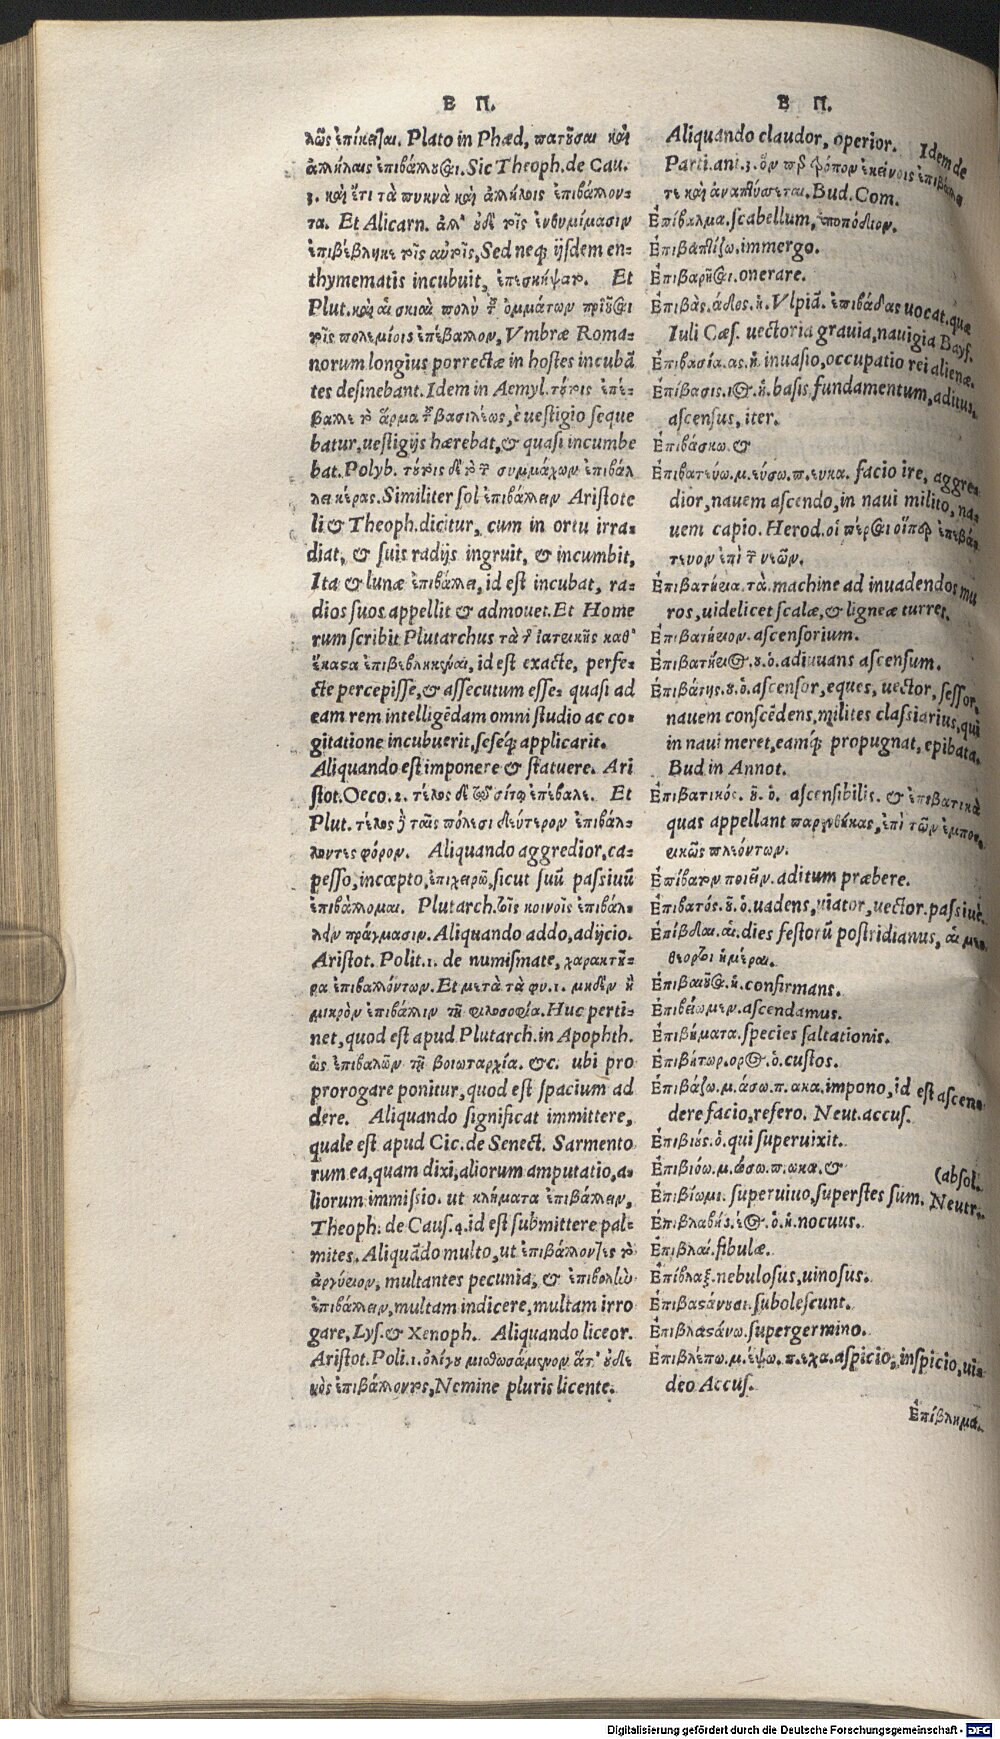 Ε Π.
λῶς ἐπίκειται. Plato in Phæd, πατοῦσαι καὶ
ἀλλήλαις ἐπιβάλλουσαι. Sic Theoph. de Cau.
3. καὶ ἔτι τὰ πυκνὰ καὶ ἀλλήλοις ἐπιβάλλον-
τα. Et Alicarn. ἀλλ' οὐδὲ τοῖς ἐνθυμήμασιν
ἐπιβέβληκε τοῖς αὐτοῖς, Sed neq; ijsdem en-
thymematis incubuit, ἐπεσκήψατο. Et
Plut. καὶ αἱ σκιαὶ πολὺ τῶν ὀμμάτων προϊοῦσαι
τοῖς πολεμίοις ἐπέβαλλον, Vmbræ Roma-
norum longius porrectæ in hostes incubā
tes desinebant. Idem in Aemyl. τούτοις ἐπέ-
βαλλε τὸ ἅρμα τοῦ βασιλέως, è uestigio seque
batur, uestigijs hærebat, & quasi incumbe
bat. Polyb. τούτοις δὲ τὸ τῶν συμμάχων ἐπιβάλ
λει κέρας. Similiter sol ἐπιβάλλειν Aristote
li & Theoph. dicitur, cum in ortu irra-
diat, & suis radijs ingruit, & incumbit,
Ita & lunæ ἐπιβάλλει, id est incubat, ra-
dios suos appellit & admouet. Et Home
rum scribit Plutarchus τὰ τῆς ἰατρικῆς καθ'
ἕκαστα ἐπιβεβληκέναι, id est exacte, perfe-
cte percepisse, & assecutum esse- quasi ad
eam rem intelligēdam omni studio ac co-
gitatione incubuerit, seseq́; applicarit.
Aliquando est imponere & statuere. Ari
stot. Oeco. 2. τέλος δὲ τῷ σίτῳ ἐπέβαλε. Et
Plut. τέλος δὲ ταῖς πόλεσι δεύτερον ἐπιβάλ-
λοντες φόρον. Aliquando aggredior, ca-
pesso, incœpto, ἐπιχειρῶ, sicut suū passiuū
ἐπιβάλλομαι. Plutarch. τοῖς κοινοῖς ἐπιβάλ-
λειν πράγμασιν. Aliquando addo, adijcio.
Aristot. Polit. 1. de numismate, χαρακτῆ-
ρα ἐπιβαλλόντων. Et μετὰ τὰ φυ. 1. μηδὲν ἢ
μικρὸν ἐπιβάλλειν τῇ φιλοσοφίᾳ. Huc perti-
net, quod est apud Plutarch. in Apophth.
ὡς ἐπιβαλὼν τῇ βοιωταρχίᾳ. &c. ubi pro
prorogare ponitur, quod est spacium ad
dere. Aliquando significat immittere,
quale est apud Cic. de Senect. Sarmento
rum ea, quam dixi, aliorum amputatio, a-
liorum immissio. ut κλήματα ἐπιβάλλειν,
Theoph. de Caus. 4. id est submittere pal-
mites. Aliquādo multo, ut ἐπιβάλλοντες τὸ
ἀργύριον, multantes pecunia, & ἐπιβολὴν
ἐπιβάλλειν, multam indicere, multam irro
gare, Lys. & Xenoph. Aliquando liceor.
Aristot. Poli. 1. ὀλίγου μισθωσάμενον ἅτ' οὐδε
νὸς ἐπιβάλλοντος, Nemine pluris licente.
Ε Π.
Aliquando claudor, operior. Idem de
Parti. ani. 3. ὃν τρόπον ἐκείνοις ἐπιβάλλε
τε καὶ ἀναπτύσσεται. Bud. Com.
Ἐπίβαλμα. scabellum, ὑποπόδιον.
Ἐπιβαπτίζω. immergo.
Ἐπιβαρῆσαι. onerare.
Ἐπιβὰς. άδος. ἡ. Vlpiā. ἐπιβάδας uocat. quæ
Iuli Cæs. uectoria grauia, nauigia Bayf.
Ἐπιβασία. ας. ἡ inuasio, occupatio rei alienæ.
Ἐπίβασις. ιος. ἡ. basis, fundamentum, aditus,
ascensus, iter.
Ἐπιβάσκω. &
Ἐπιβατεύω. μ. εύσω. π. ευκα. facio ire, aggre-
dior, nauem ascendo, in naui milito, na-
uem capio. Herod. οἱ πέρσαι οἵπερ ἐπεβά-
τευον ἐπὶ τῶν νεῶν.
Ἐπιβατήρια. τὰ. machine ad inuadendos mu
ros, uidelicet scalæ, & ligneæ turres.
Ἐπιβατήριον. ascensorium.
Ἐπιβατήριος. ου. ὁ. adiuuans ascensum.
Ἐπιβάτης. ου. ὁ. ascensor, eques, uector, sessor,
nauem conscēdens, milites classiarius, qui
in naui meret, eamq́; propugnat, epibata.
Bud in Annot.
Ἐπιβατικός. οῦ. ὁ. ascensibilis. & ἐπιβατικὰ
quas appellant παρενθήκας, ἐπὶ τῶν ἐμπο-
ρικῶς πλεόντων.
Ἐπίβατον ποιεῖν. aditum præbere.
Ἐπιβατός. οῦ. ὁ. uadens, uiator, uector. passiuè.
Ἐπίβδαι. αἱ. dies festorū postridianus, αἱ με-
θεορτοι ἡμέραι.
Ἐπιβαιοῦσα. ἡ. confirmans.
Ἐπιβείωμεν. ascendamus.
Ἐπιβήματα. species saltationis.
Ἐπιβήτωρ. ορος. ὁ. custos.
Ἐπιβάζω. μ. άσω. π. ακα. impono, id est ascen-
dere facio, refero. Neut. accus.
Ἐπιβιούς. ὁ. qui superuixit.
Ἐπιβιόω. μ. ώσω. π. ωκα. & (absol.
Ἐπιβίωμι. superuiuo, superstes sum. Neutr.
Ἐπιβλαβής. έος. ὁ. ἡ. nocuus.
Ἐπιβλαί. fibulæ.
Ἐπίβλαξ. nebulosus, uinosus.
Ἐπιβαστάνουσι. subolescunt.
Ἐπιβλαστάνω. supergermino.
Ἐπιβλέπω. μ. έψω. π. εχα. aspicio, inspicio, ui-
deo Accus.
Ἐπίβλημα.
Digitalisierung gefördert durch die Deutsche Forschungsgemeinschaft - DFG